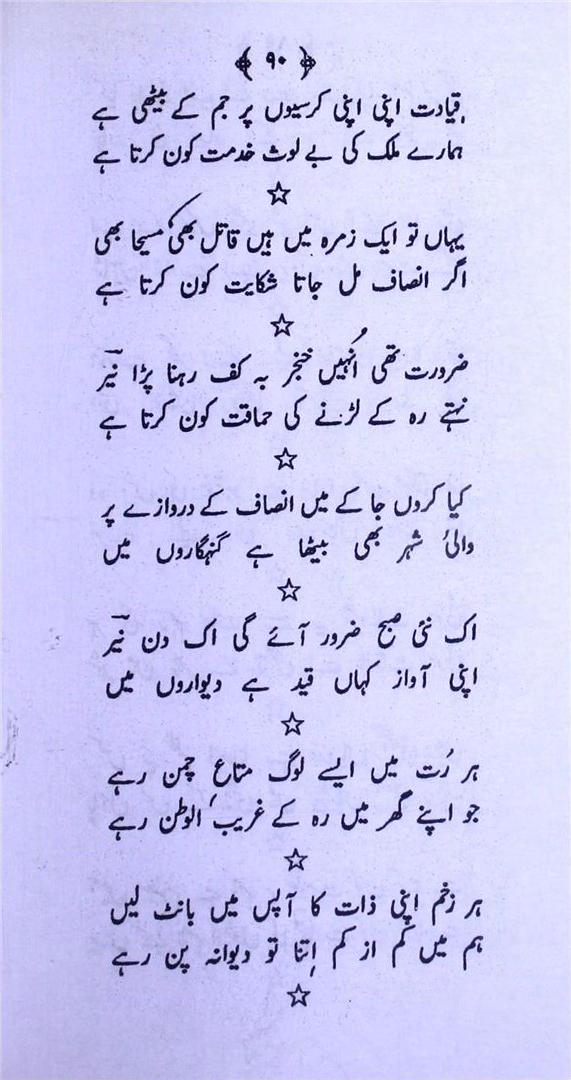 ﴿۹۰﴾
قیادت اپنی اپنی کرسیوں پر جم کے بیٹھی ہے
ہمارے ملک کی بے لوث خدمت کون کرتا ہے
☆
یہاں تو ایک زمرہ میں ہیں قاتل بھی مسیحا بھی
اگر انصاف مل جاتا شکایت کون کرتا ہے
☆
ضرورت تھی اُنہیں خنجر بہ کف رہنا پڑا نیّر
نہتے رہ کے لڑنے کی حماقت کون کرتا ہے
☆
کیا کروں جا کے میں انصاف کے دروازے پر
والیٔ شہر بھی بیٹھا ہے گنہگاروں میں
☆
اک نئی صبح ضرور آئے گی اک دن نیّر
اپنی آواز کہاں قید ہے دیواروں میں
☆
ہر رُت میں ایسے لوگ متاعِ چمن رہے
جو اپنے گھر میں رہ کے غریب الوطن رہے
☆
ہر زخم اپنی ذات کا آپس میں بانٹ لیں
ہم میں کم از کم اِتنا تو دیوانہ پن رہے
☆